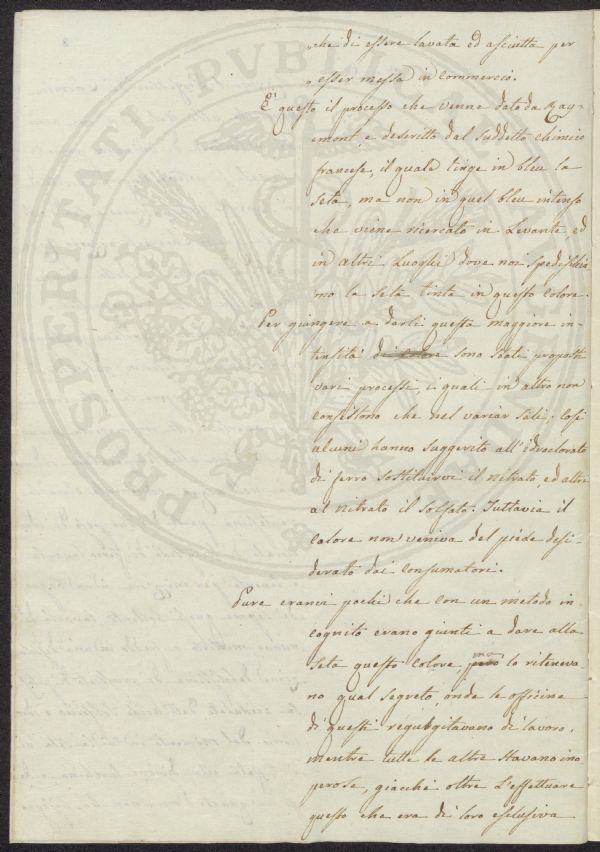 che di essere lavata ed asciutta per
esser messa in commercio.
È questo il processo che venne dato da Ray-
mont e descritto dal suddetto chimico
francese, il quale tinge in bleu la
seta, ma non in quel bleu intenso
che viene ricercato in Levante, ed
in altri Luoghi dove noi spedischia
mo la seta tinta in questo colore.
Per giungere a darli questa maggiore in-
tensità di colore sono stati proposti
vari processi, i quali in altro non
consistono che nel variar sali; così
alcuni hanno suggerito all'idroclorato
di ferro sostituirvi il nitrato, ed altri
al nitrato il solfato. Tuttavia il
colore non veniva del piede desi-
derato dai consumatori.
Pure eranvi pochi che con un metodo in-
cognito erano giunti a dare alla
seta questo colore però ma lo riteneva
no qual segreto, onde le officine
di questi regurgitavano di lavoro,
mentre tutte le altre stavano ino
perose, giacchè oltre l'effettuare
questo che era di loro esclusiva
PROSPERITATI PUBLICAE